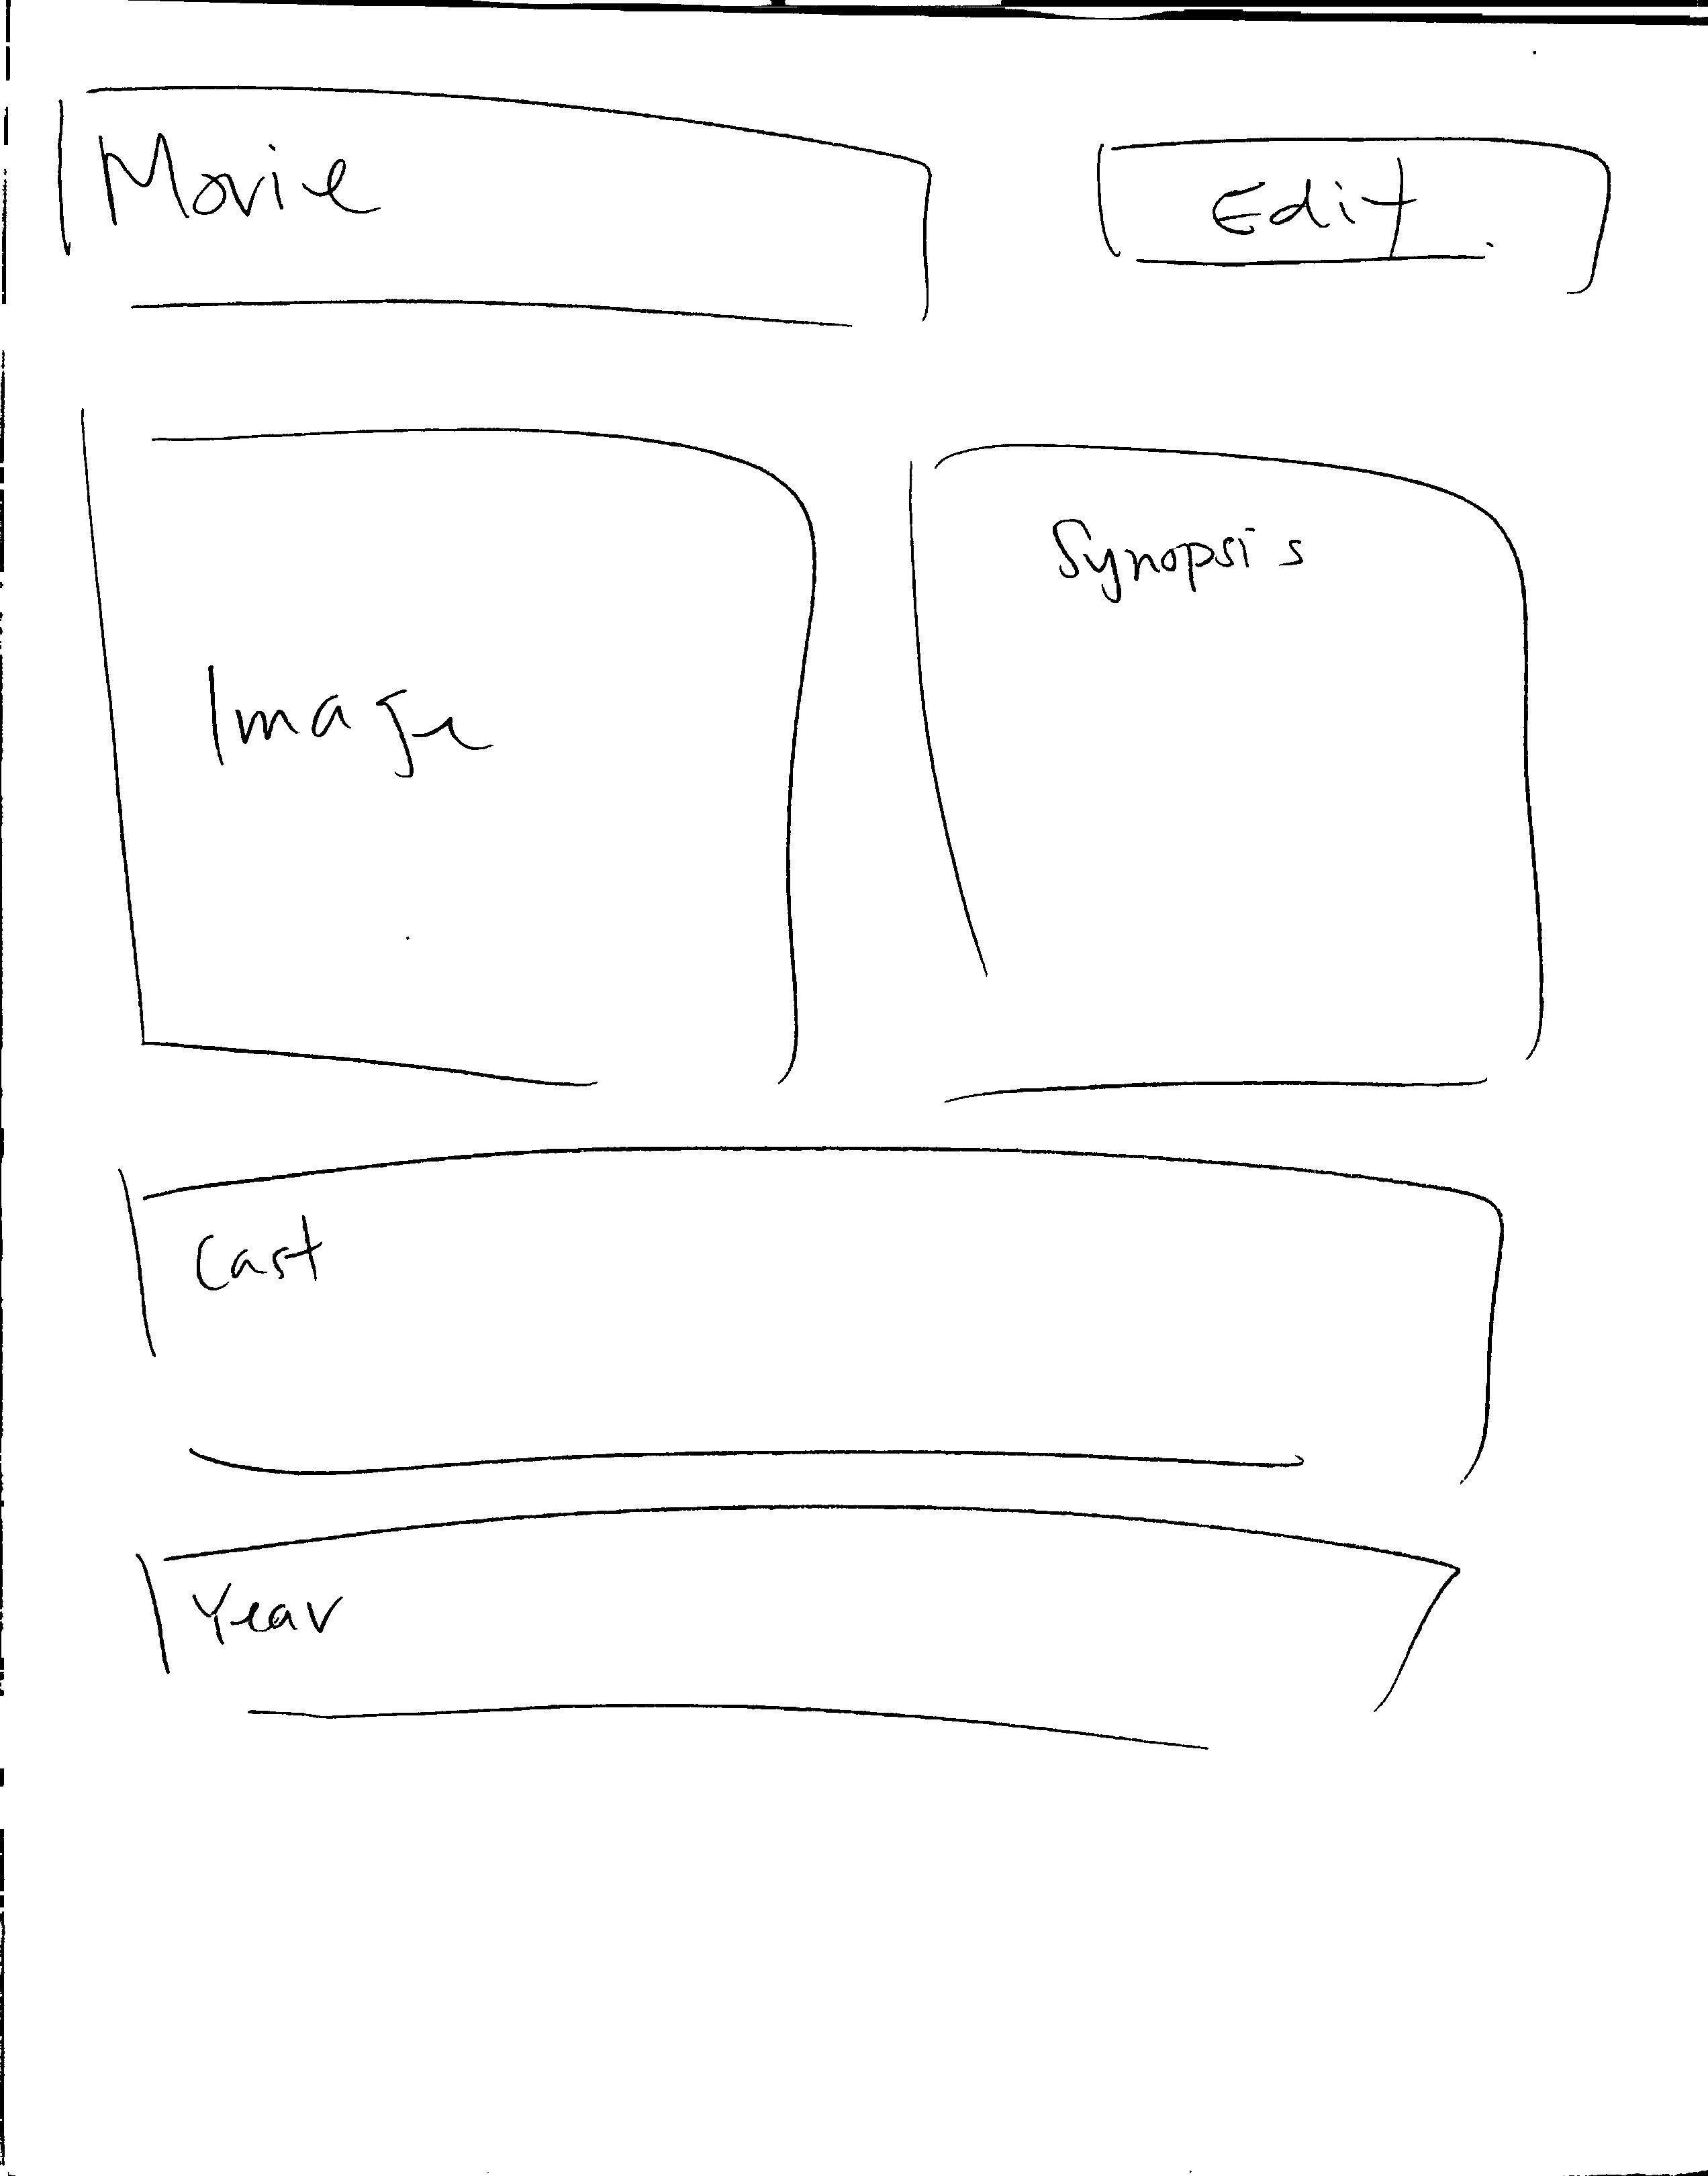 Movie
Edit
Image
Synopsis
Cast
Year